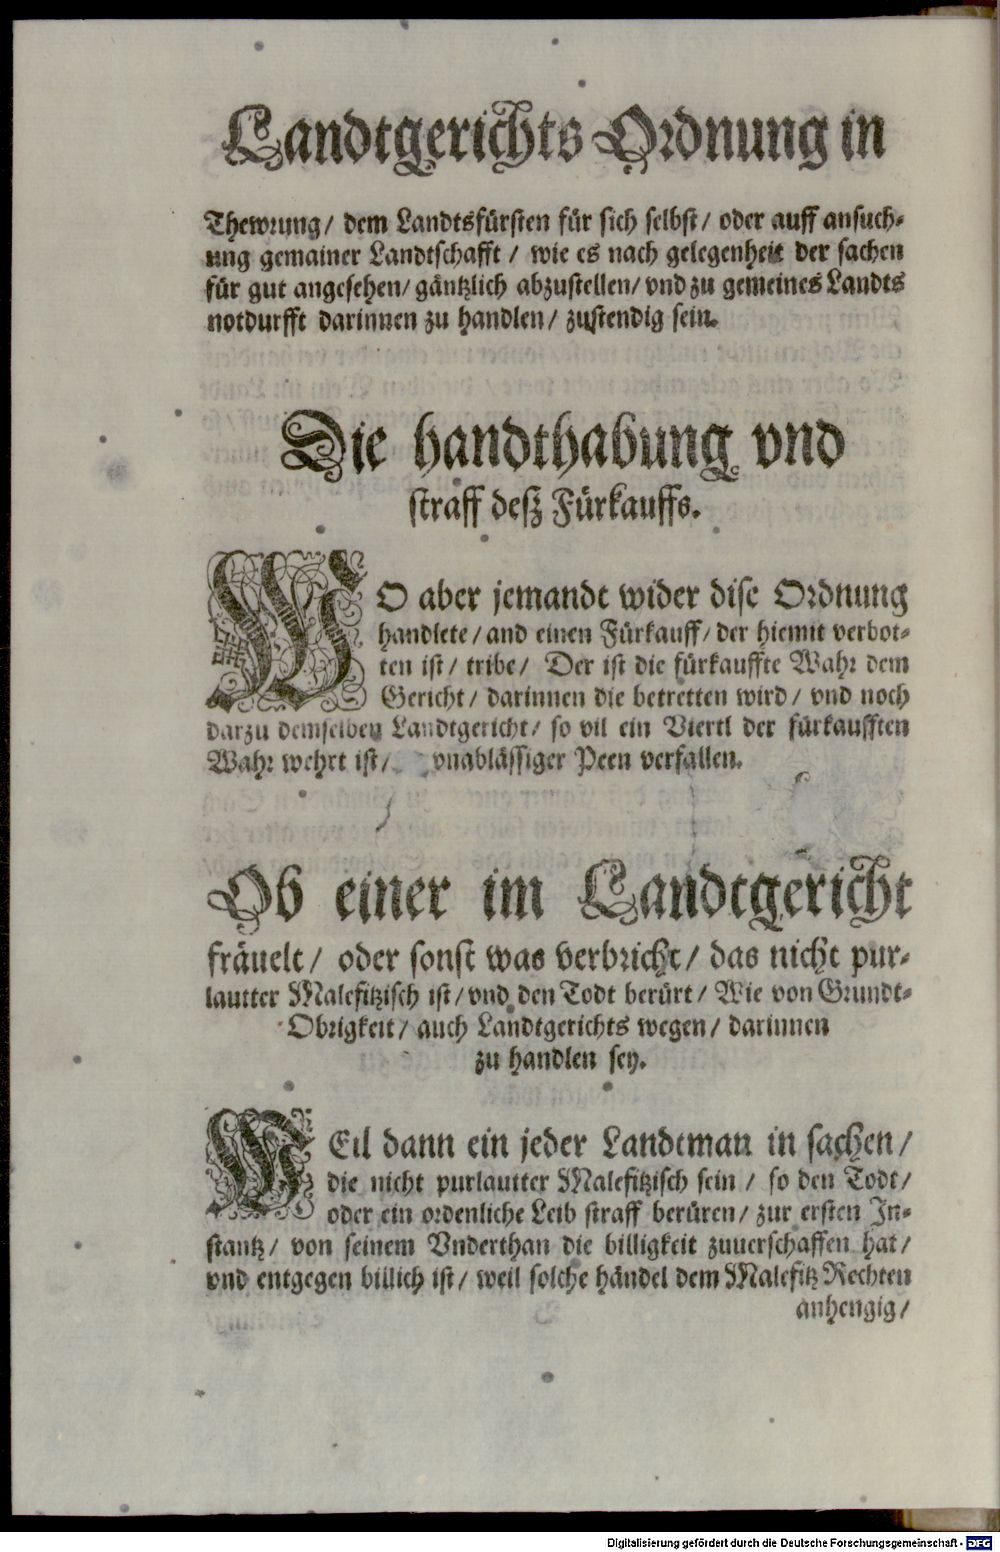 Landtgerichts Ordnung in
Thewrung/ dem Landtsfürsten für sich selbst/ oder auff ansuch-
ung gemainer Landtschafft / wie es nach gelegenheit der sachen
für gut angesehen/ gäntzlich abzustellen/ vnd zu gemeines Landts
notdurfft darinnen zu handlen/ zustendig sein.
Die handthabung vnd
straff deß Fürkauffs.
WO aber jemandt wider dise Ordnung
handlete/ and einen Fürkauff/ der hiemit verbot-
ten ist/ tribe/ Der ist die fürkauffte Wahr dem
Gericht/ darinnen die betretten wird/ vnd noch
darzu demselben Landtgericht/ so vil ein Viertl der fürkaufften
Wahr wehrt ist/ vnablässiger Peen verfallen.
Ob einer im Landtgericht
fräuelt/ oder sonst was verbricht/ das nicht pur-
lautter Malefitzisch ist/ vnd den Todt berürt/ Wie von Grundt-
Obrigkeit/ auch Landtgerichts wegen/ darinnen
zu handlen sey.
WEil dann ein jeder Landtman in sachen/
die nicht purlautter Malefitzisch sein / so den Todt/
oder ein ordenliche Leib straff berüren/ zur ersten In-
stantz/ von seinem Vnderthan die billigkeit zuuerschaffen hat/
vnd entgegen billich ist/ weil solche händel dem Malefitz Rechten
anhengig/
Digitalisierung gefördert durch die Deutsche Forschungsgemeinschaft - DFG